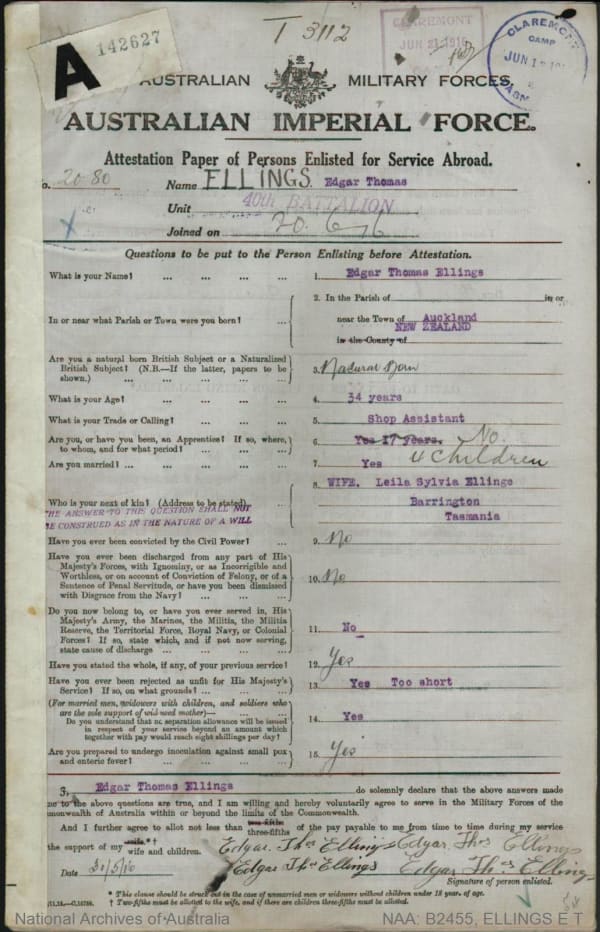 T 3112
CLAREMONT
JUN 21 1916
CLAREMONT
CAMP
JUN 1
A 142627
AUSTRALIAN MILITARY FORCES.
AUSTRALIAN IMPERIAL FORCE.
Attestation Paper of Persons Enlisted for Service Abroad.
o. 2080 Name ELLINGS. Edgar Thomas
Unit 40th BATTALION
Joined on 20. 6 16
Questions to be put to the Person Enlisting before Attestation.
What is your Name? ... ... ... ... 1. Edgar Thomas Ellings
2. In the Parish of in or
In or near what Parish or Town were you born? ... near the Town of Auckland
NEW ZEALAND
in the County of
Are you a natural born British Subject or a Naturalized
British Subject? (N.B.—If the latter, papers to be
shown.) ... ... ... ... 3. Natural Born
What is your Age? ... ... ... ... 4. 34 years
What is your Trade or Calling? ... ... ... 5. Shop Assistant
Are you, or have you been, an Apprentice? If so, where,
to whom, and for what period? ... ... ... 6. Yes 17 years. No.
Are you married? ... ... ... ... 7. Yes 4 children
Who is your next of kin? (Address to be stated) 8. WIFE. Leila Sylvia Ellings
Barrington
Tasmania
HE ANSWER TO THIS QUESTION SHALL NOT
BE CONSTRUED AS IN THE NATURE OF A WILL
Have you ever been convicted by the Civil Power? ... 9. No
Have you ever been discharged from any part of His
Majesty's Forces, with Ignominy, or as Incorrigible and
Worthless, or on account of Conviction of Felony, or of a
Sentence of Penal Servitude, or have you been dismissed
with Disgrace from the Navy? ... ... ... 10. No
Do you now belong to, or have you ever served in, His
Majesty's Army, the Marines, the Militia, the Militia
Reserve, the Territorial Force, Royal Navy, or Colonial
Forces? If so, state which, and if not now serving,
state cause of discharge ... ... ... 11. No
Have you stated the whole, if any, of your previous service? 12. Yes
Have you ever been rejected as unfit for His Majesty's
Service? If so, on what grounds? ... ... ... 13. Yes Too short
(For married men, widowers with children, and soldiers who
are the sole support of widowed mother)— ... ...
Do you understand that no separation allowance will be issued
in respect of your service beyond an amount which
together with pay would reach eight shillings per day? 14. Yes
Are you prepared to undergo inoculation against small pox
and enteric fever? ... ... ... ... 15. Yes
I, Edgar Thomas Ellings do solemnly declare that the above answers made
me to the above questions are true, and I am willing and hereby voluntarily agree to serve in the Military Forces of the
mmonwealth of Australia within or beyond the limits of the Commonwealth.
And I further agree to allot not less than two-fifths three-fifths of the pay payable to me from time to time during my service
the support of my wife.*† wife and children. Edgar. Thos Ellings Edgar. Thos Ellings
Date 31/5/16 Edgar Thos Ellings Edgar Thos. Ellings
Signature of person enlisted.
* This clause should be struck out in the case of unmarried men or widowers without children under 18 years of age.
† Two-fifths must be allotted to the wife, and if there are children three-fifths must be allotted.
National Archives of Australia
NAA: B2455, ELLINGS E T